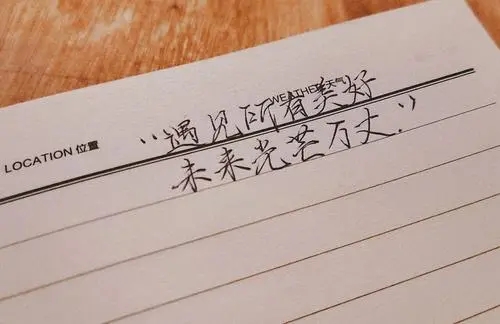 “遇见所有美好
WEATHER 天气
LOCATION 位置
未来光芒万丈.”